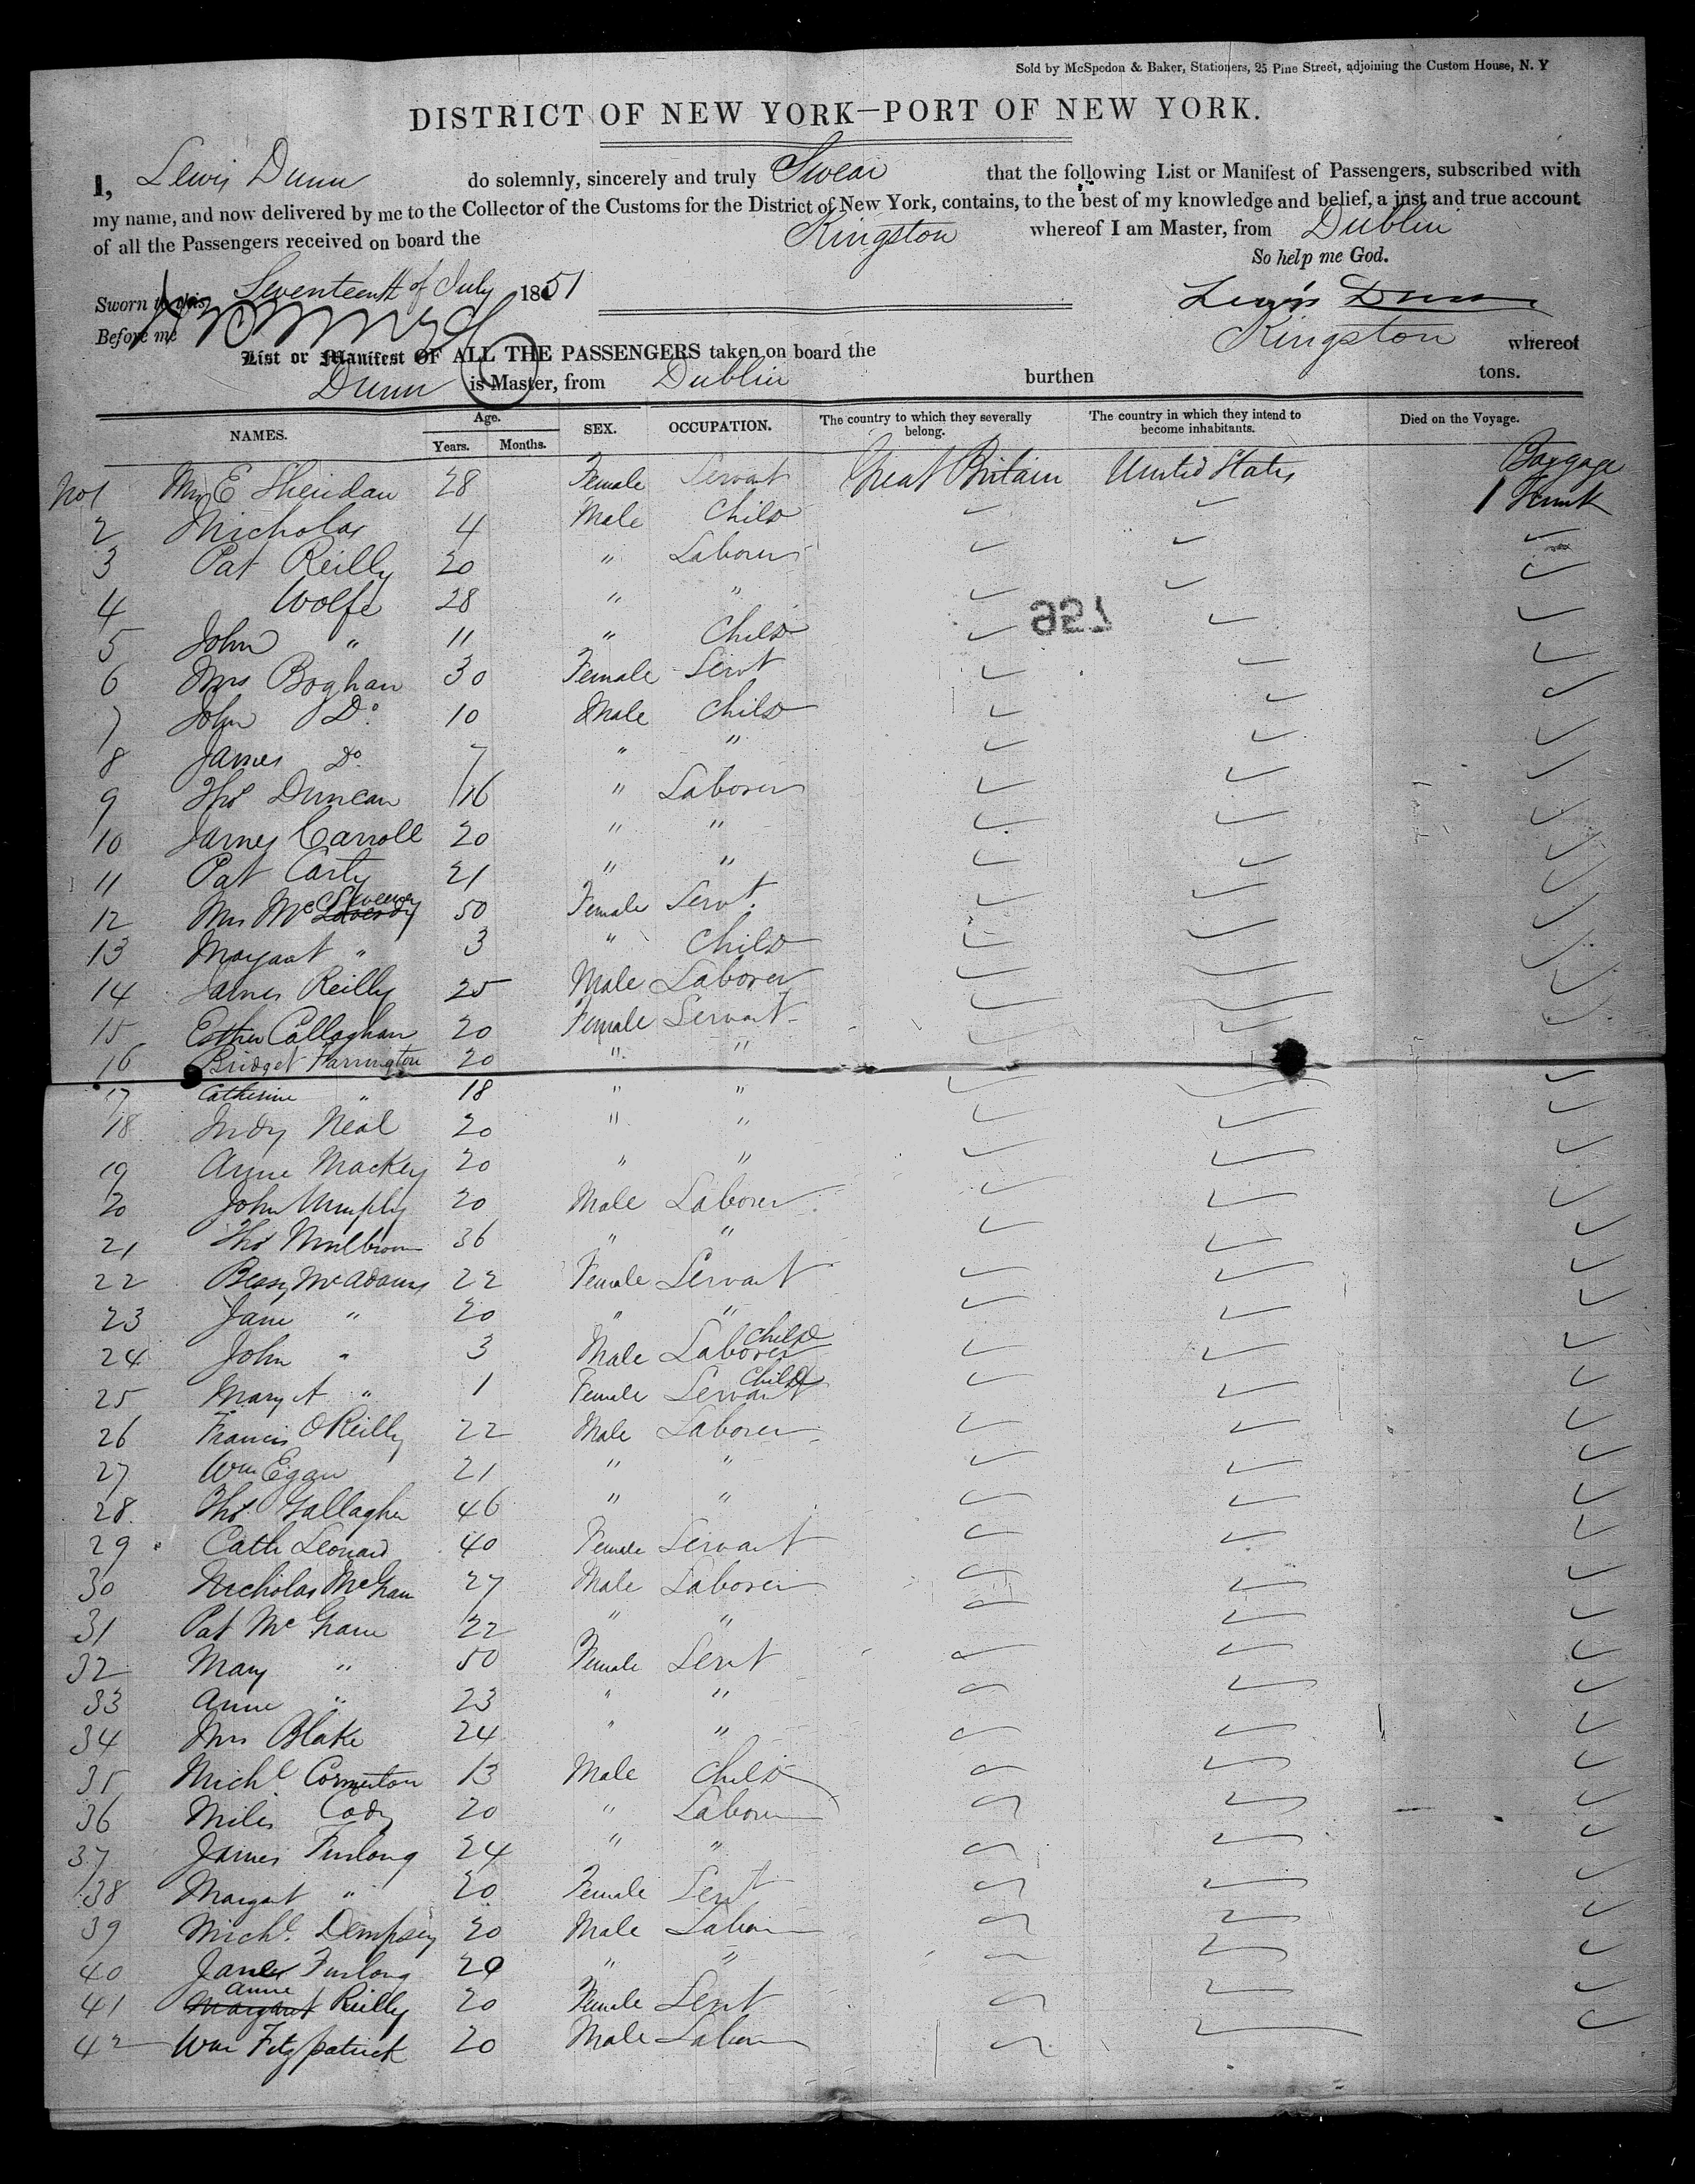 Sold by McSpedon & Baker, Stationers, 25 Pine Street, adjoining the Custom House, N. Y
DISTRICT OF NEW YORK—PORT OF NEW YORK.
I, Lewis Dunn do solemnly, sincerely and truly Swear that the following List or Manifest of Passengers, subscribed with
my name, and now delivered by me to the Collector of the Customs for the District of New York, contains, to the best of my knowledge and belief, a just and true account
of all the Passengers received on board the Kingston whereof I am Master, from Dublin
So help me God.
Sworn to this Seventeenth of July 1851
Lewis Dunn
Before me
List or Manifest OF ALL THE PASSENGERS taken on board the Kingston whereof
Dunn is Master, from Dublin burthen tons.
NAMES. Age. Years. Months. SEX. OCCUPATION. The country to which they severally belong. The country in which they intend to become inhabitants. Died on the Voyage.
Baggage
No 1 Mrs E Sheridan 28 Female Servant Great Britain United States 1 Trunk
2 Nicholas 4 Male Child
3 Pat Reilly 20 " Laborer
4 Wolfe 28 " "
5 John " 11 " Child
6 Mrs Boghan 30 Female Servt
7 John Do. 10 Male Child
8 James Do. 7 " "
9 Thos Duncan 16 " Laborer
10 James Carroll 20 " "
11 Pat Carty 21 " "
12 Mrs Mc Sweeney 50 Female Servt.
13 Margaret " 3 " Child
14 James Reilly 25 Male Laborer
15 Esther Callaghan 20 Female Servant
16 Bridget Farrington 20 " "
17 Catherine " 18 " "
18 Judy Neal 20 " "
19 Anne Mackey 20 " "
20 John Murphy 20 Male Laborer
21 Thos 36 " "
22 Bessy McAdams 22 Female Servant
23 Jane " 20 " "
24 John " 3 Male Laborer Child
25 Mary A " 1 Female Servant Child
26 Francis O'Reilly 22 Male Laborer
27 Wm Egan 21 " "
28 Thos Gallagher 46 " "
29 Cath Leonard 40 Female Servant
30 Nicholas 27 Male Laborer
31 Pat 22 " "
32 Mary " 50 Female Servt
33 Anne " 23 " "
34 Mrs Blake 24 " "
35 Michl 13 Male Child
36 Miles Cody 20 " Laborer
37 James Furlong 24 " "
38 Margaret " 20 Female Servt
39 Michl. Dempsey 20 Male Labor
40 James Furlong 20 " "
41 Margaret Anne Reilly 20 Female Servt
42 Wm Fitzpatrick 20 Male Labor